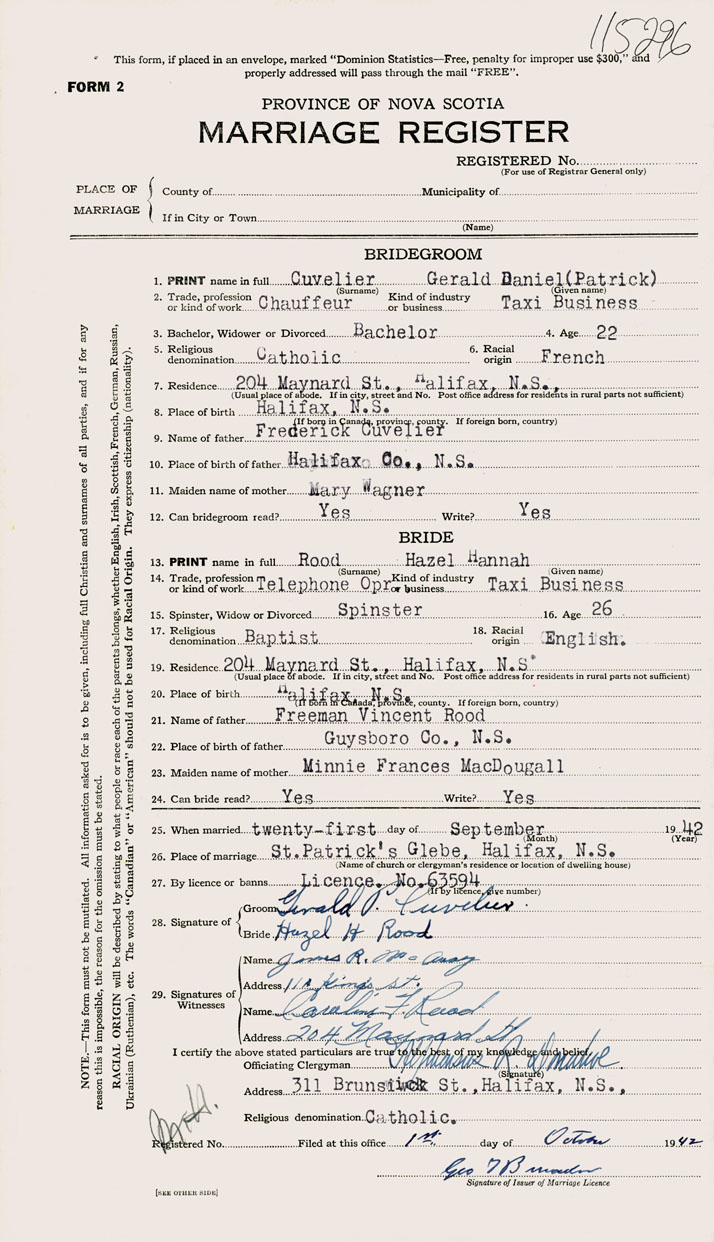 115296
This form, if placed in an envelope, marked "Dominion Statistics—Free, penalty for improper use $300," and
properly addressed will pass through the mail "FREE".
FORM 2
PROVINCE OF NOVA SCOTIA
MARRIAGE REGISTER
REGISTERED No.
(For use of Registrar General only)
PLACE OF MARRIAGE
County of Municipality of
If in City or Town
(Name)
BRIDEGROOM
1. PRINT name in full Cuvelier Gerald Daniel(Patrick)
(Surname) (Given name)
2. Trade, profession or kind of work Chauffeur Kind of industry or business Taxi Business
3. Bachelor, Widower or Divorced Bachelor 4. Age 22
5. Religious denomination Catholic 6. Racial origin French
7. Residence 204 Maynard St., Halifax, N.S.,
(Usual place of abode. If in city, street and No. Post office address for residents in rural parts not sufficient)
8. Place of birth Halifax, N.S.
(If born in Canada, province, county. If foreign born, country)
9. Name of father Frederick Cuvelier
10. Place of birth of father Halifax Co., N.S.
11. Maiden name of mother Mary Wagner
12. Can bridegroom read? Yes Write? Yes
BRIDE
13. PRINT name in full Rood Hazel Hannah
(Surname) (Given name)
14. Trade, profession or kind of work Telephone Opr Kind of industry or business Taxi Business
15. Spinster, Widow or Divorced Spinster 16. Age 26
17. Religious denomination Baptist 18. Racial origin English.
19. Residence 204 Maynard St., Halifax, N.S.
(Usual place of abode. If in city, street and No. Post office address for residents in rural parts not sufficient)
20. Place of birth Halifax, N.S.
(If born in Canada, province, county. If foreign born, country)
21. Name of father Freeman Vincent Rood
22. Place of birth of father Guysboro Co., N.S.
23. Maiden name of mother Minnie Frances MacDougall
24. Can bride read? Yes Write? Yes
25. When married twenty-first day of September 1942
(Month) (Year)
26. Place of marriage St.Patrick's Glebe, Halifax, N.S.
(Name of church or clergyman's residence or location of dwelling house)
27. By licence or banns Licence. No.63594
(If by licence, give number)
28. Signature of
Groom Gerald P. Cuvelier.
Bride Hazel H Rood
29. Signatures of Witnesses
Name James R.
Address King's St.
Name F. Rood
Address 204 Maynard St.
I certify the above stated particulars are true to the best of my knowledge and belief.
Officiating Clergyman
(Signature)
Address 311 Brunswick St.,Halifax, N.S.,
Religious denomination Catholic.
Registered No. Filed at this office 1st day of October 1942
Geo
Signature of Issuer of Marriage Licence
[SEE OTHER SIDE]
NOTE.—This form must not be mutilated. All information asked for is to be given, including full Christian and surnames of all parties, and if for any
reason this is impossible, the reason for the omission must be stated.
RACIAL ORIGIN will be described by stating to what people or race each of the parents belongs, whether English, Irish, Scottish, French, German, Russian,
Ukrainian (Ruthenian), etc. The words "Canadian" or "American" should not be used for Racial Origin. They express citizenship (nationality).